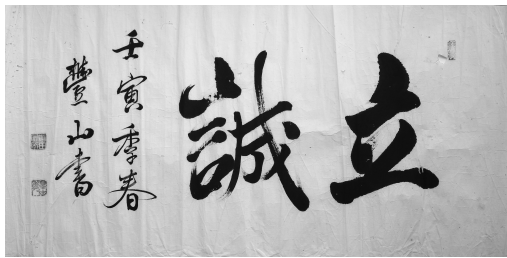 立誠
壬寅季春
豐山書